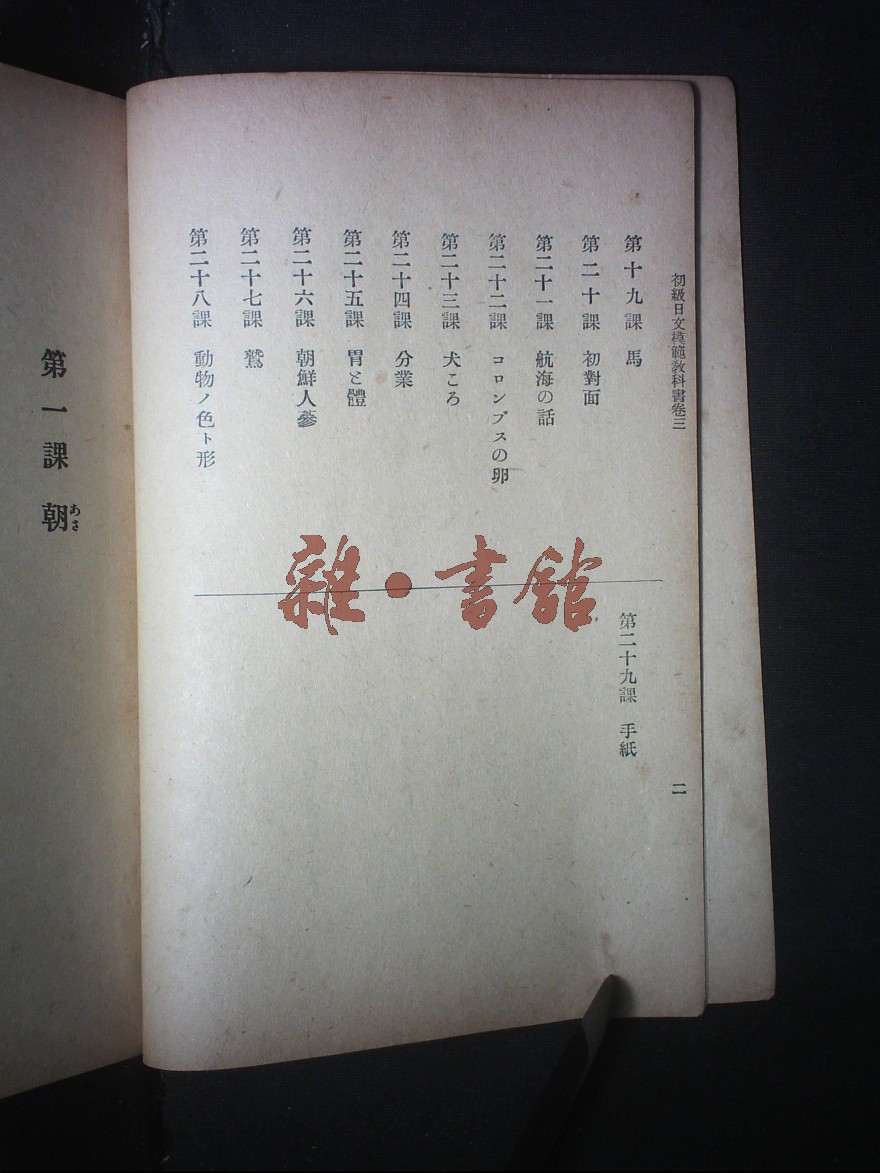 初級日文模範教科書卷三
二
第十九課 馬
第二十課 初對面
第二十一課 航海の話
第二十二課 コロンブスの卵
第二十三課 犬ころ
第二十四課 分業
第二十五課 胃と體
第二十六課 朝鮮人蔘
第二十七課 鷲
第二十八課 動物ノ色ト形
第二十九課 手紙
第一課 朝
あさ
雜·書館